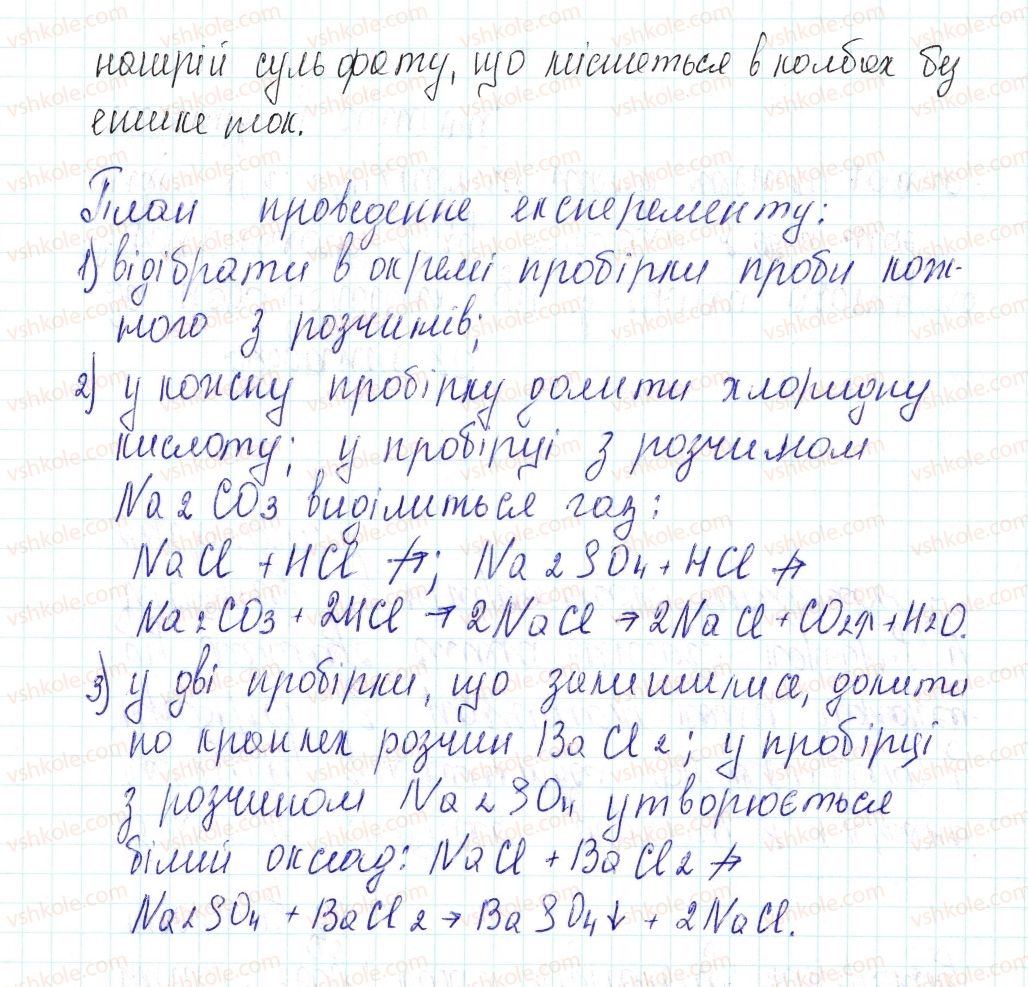 натрій сульфату, що містяться в колбах без
етикеток.
План проведення експеременту:
1) відібрати в окремі пробірки проби кож-
ного з розчинів;
2) у кожну пробірку долити хлоридну
кислоту; у пробірці з розчином
Na2CO3 виділиться газ:
NaCl + HCl ↛; Na2SO4 + HCl ↛
Na2CO3 + 2HCl → 2NaCl → 2NaCl + CO2↑ + H2O.
3) у дві пробірки, що залишилися, долити
по краплях розчин BaCl2; у пробірці
з розчином Na2SO4 утворюється
білий осад: NaCl + BaCl2 ↛
Na2SO4 + BaCl2 → BaSO4↓ + 2NaCl.